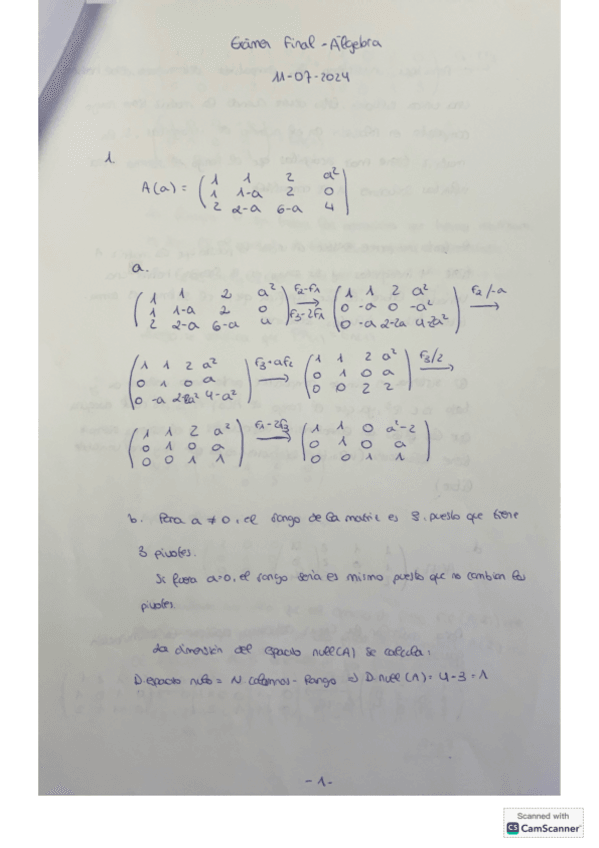 Exámen Final - Álgebra
11-07-2024
1.
A(a) = ( 1 1 2 a²
1 1-a 2 0
2 2-a 6-a 4 )
a.
( 1 1 2 a² F2-F1 ( 1 1 2 a² F2/-a
1 1-a 2 0 → 0 -a 0 -a² →
2 2-a 6-a 4 ) F3-2F1 0 -a 2-2a 4-2a² )
( 1 1 2 a² F3+aF2 ( 1 1 2 a² F3/2
0 1 0 a → 0 1 0 a →
0 -a 4-a² ) 0 0 2 2 )
( 1 1 2 a² F1-2F3 ( 1 1 0 a²-2
0 1 0 a → 0 1 0 a
0 0 1 1 ) 0 0 1 1 )
b. Para a ≠ 0, el rango de la matriz es 3, puesto que tiene
3 pivotes.
Si fuera a=0, el rango seria es mismo puesto que no cambian los
pivotes.
La dimensión del espacio null(A) se calcula:
D. espacio nulo = N columnas - Rango => D. null (A) = 4-3 = 1
-1-
Scanned with
CS CamScanner